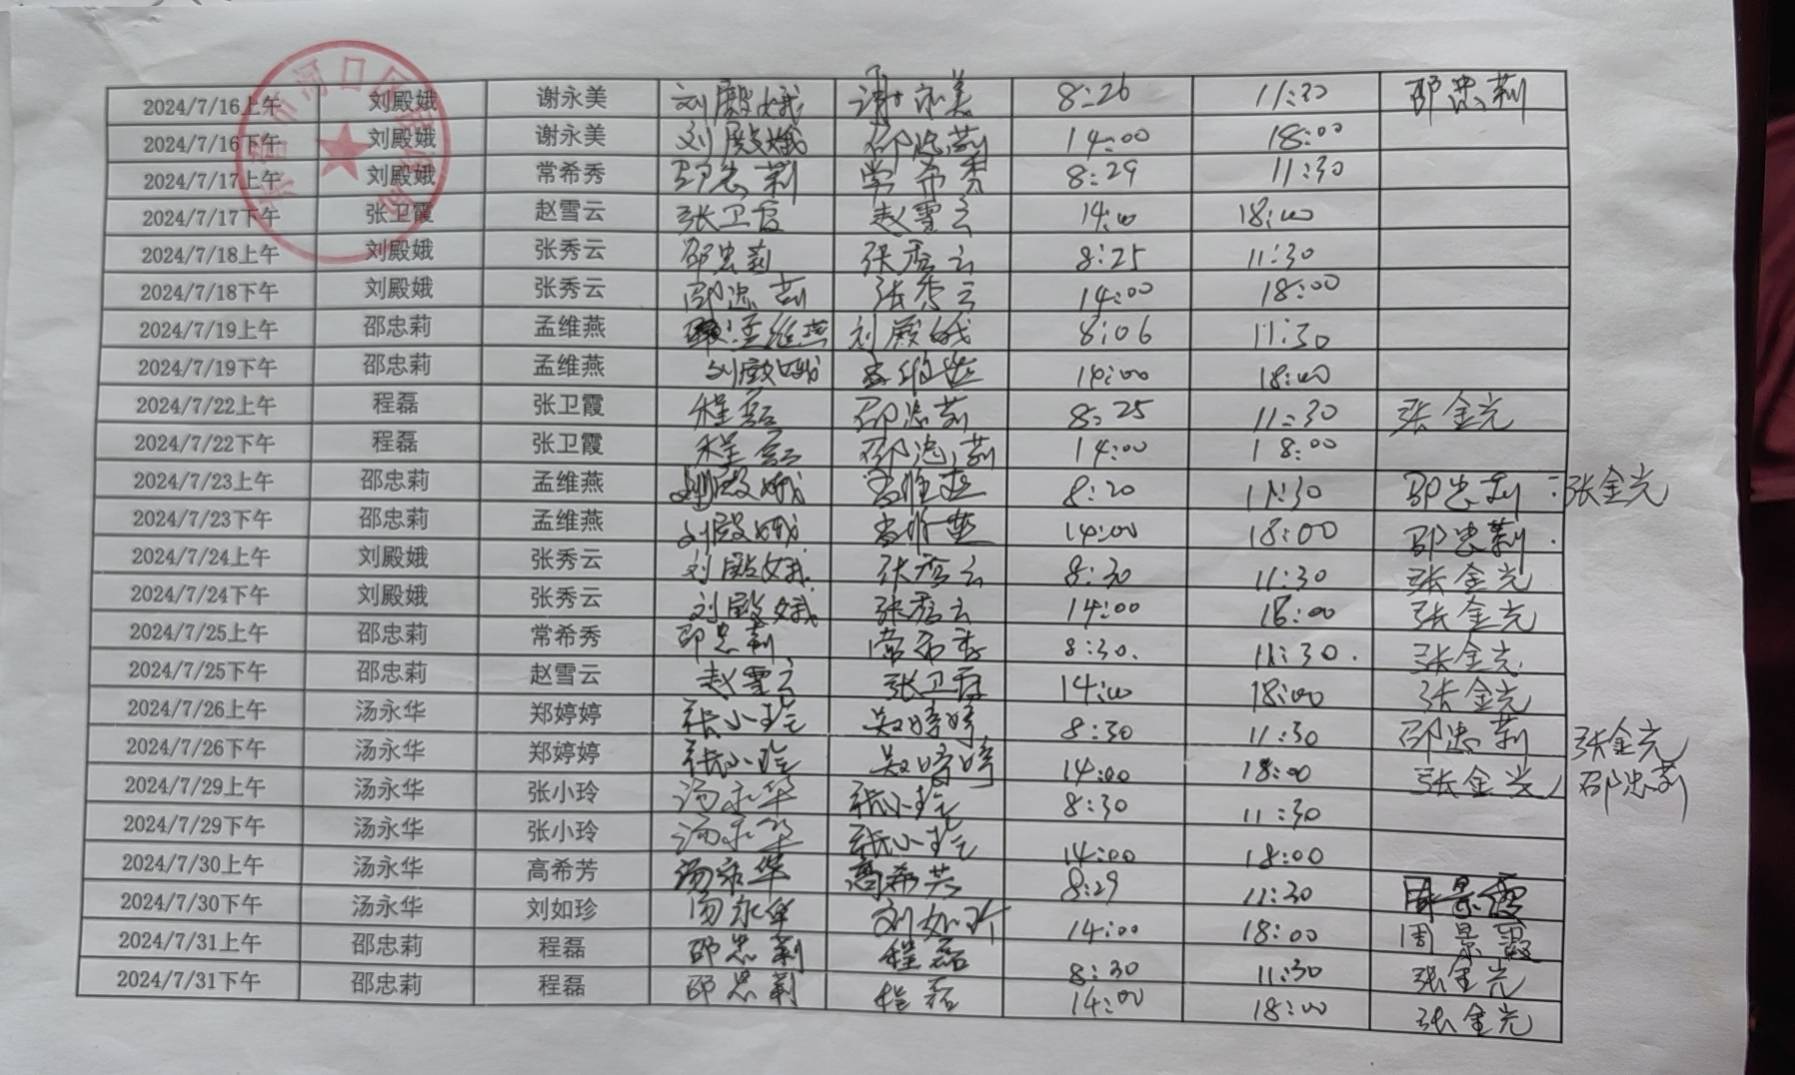 2024/7/16上午 刘殿娥 谢永美 刘殿娥 谢永美 8:26 11:30 邵忠莉
2024/7/16下午 刘殿娥 谢永美 刘殿娥 邵忠莉 14:00 18:00
2024/7/17上午 刘殿娥 常希秀 邵忠莉 常希秀 8:29 11:30
2024/7/17下午 张卫霞 赵雪云 张卫霞 赵雪云 14:00 18:00
2024/7/18上午 刘殿娥 张秀云 邵忠莉 张秀云 8:25 11:30
2024/7/18下午 刘殿娥 张秀云 邵忠莉 张秀云 14:00 18:00
2024/7/19上午 邵忠莉 孟维燕 孟维燕 刘殿娥 8:06 11:30
2024/7/19下午 邵忠莉 孟维燕 刘殿娥 孟维燕 14:00 18:00
2024/7/22上午 程磊 张卫霞 程磊 邵忠莉 8:25 11:30 张金光
2024/7/22下午 程磊 张卫霞 程磊 邵忠莉 14:00 18:00
2024/7/23上午 邵忠莉 孟维燕 刘殿娥 孟维燕 8:20 11:30 邵忠莉 张金光
2024/7/23下午 邵忠莉 孟维燕 刘殿娥 孟维燕 14:00 18:00 邵忠莉
2024/7/24上午 刘殿娥 张秀云 刘殿娥 张秀云 8:30 11:30 张金光
2024/7/24下午 刘殿娥 张秀云 刘殿娥 张秀云 14:00 18:00 张金光
2024/7/25上午 邵忠莉 常希秀 邵忠莉 常希秀 8:30. 11:30. 张金光
2024/7/25下午 邵忠莉 赵雪云 赵雪云 张卫霞 14:00 18:00 张金光
2024/7/26上午 汤永华 郑婷婷 张小玲 郑婷婷 8:30 11:30 邵忠莉 张金光
2024/7/26下午 汤永华 郑婷婷 张小玲 郑婷婷 14:00 18:00 张金光 邵忠莉
2024/7/29上午 汤永华 张小玲 汤永华 张小玲 8:30 11:30
2024/7/29下午 汤永华 张小玲 汤永华 张小玲 14:00 18:00
2024/7/30上午 汤永华 高希芳 汤永华 高希芳 8:29 11:30 周景霞
2024/7/30下午 汤永华 刘如珍 汤永华 刘如珍 14:00 18:00 周景霞
2024/7/31上午 邵忠莉 程磊 邵忠莉 程磊 8:30 11:30 张金光
2024/7/31下午 邵忠莉 程磊 邵忠莉 程磊 14:00 18:00 张金光